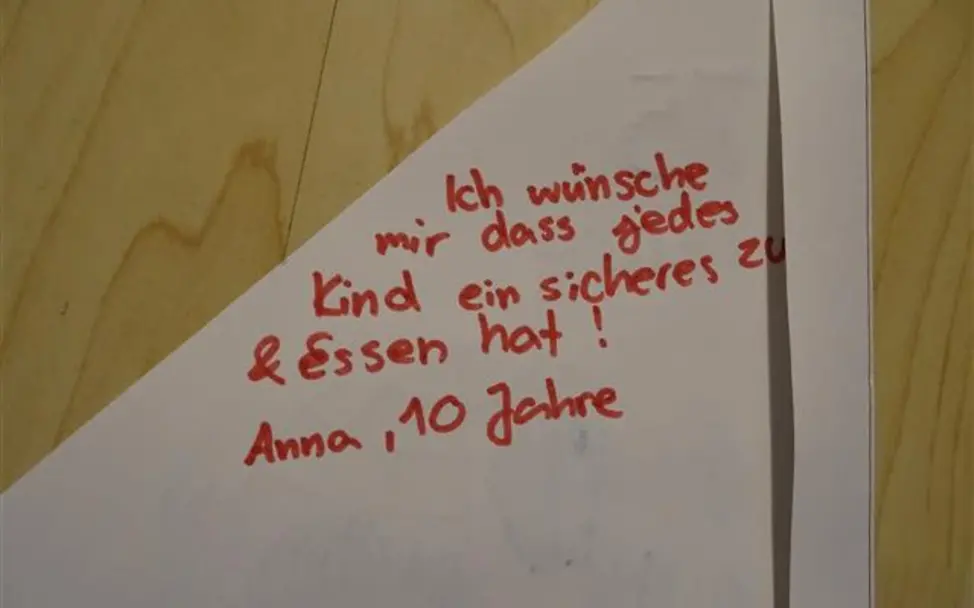 Ich wünsche
mir dass jedes
Kind ein sicheres zu
& Essen hat !
Anna, 10 Jahre